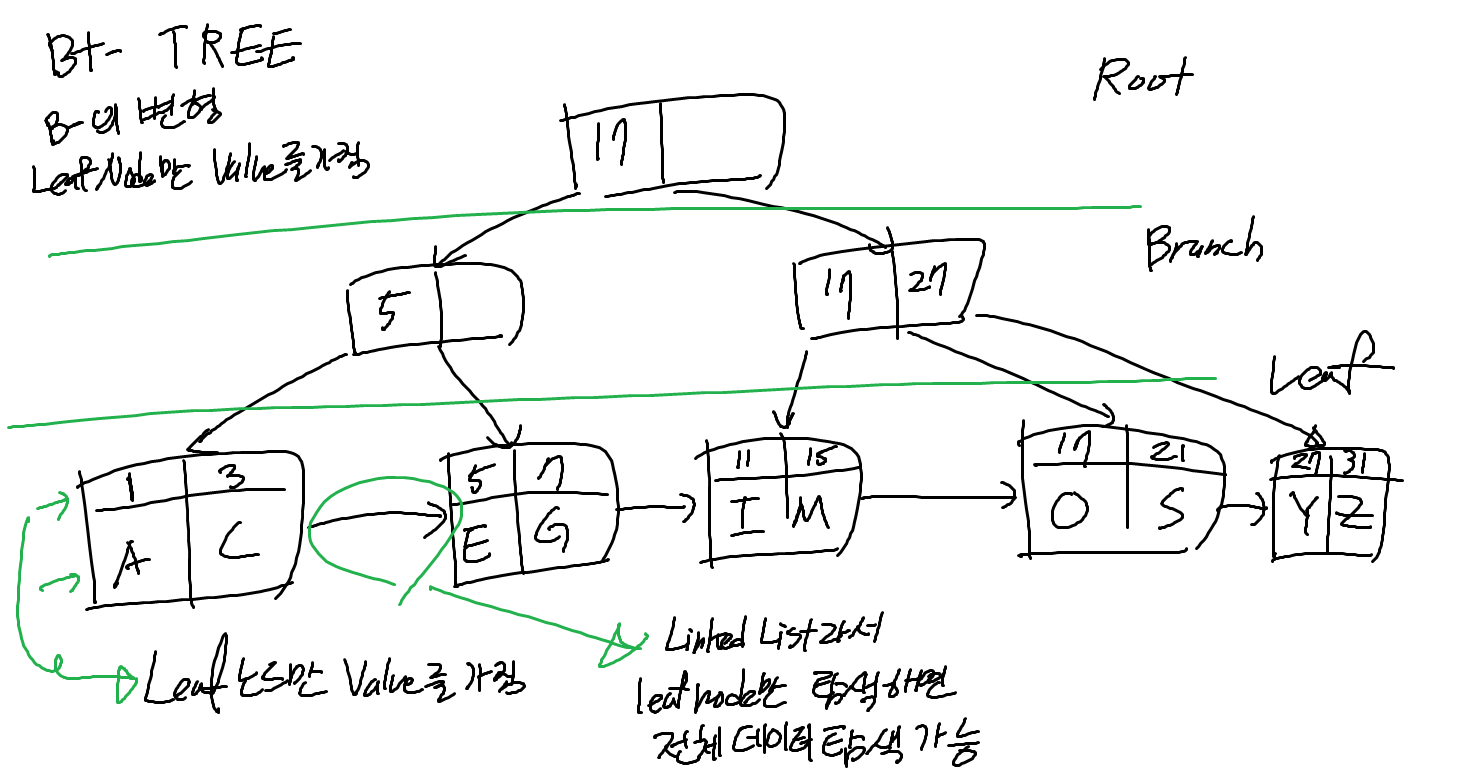 B+- TREE
B-의 변형
Leaf Node만 Value를 가짐
Root
17
Branch
5
17 27
Leaf
1 3
A C
5 7
E G
11 15
I M
17 21
O S
27 31
Y Z
Leaf 노드만 Value를 가짐
Linked List라서
leaf node만 탐색하면
전체 데이터 탐색 가능